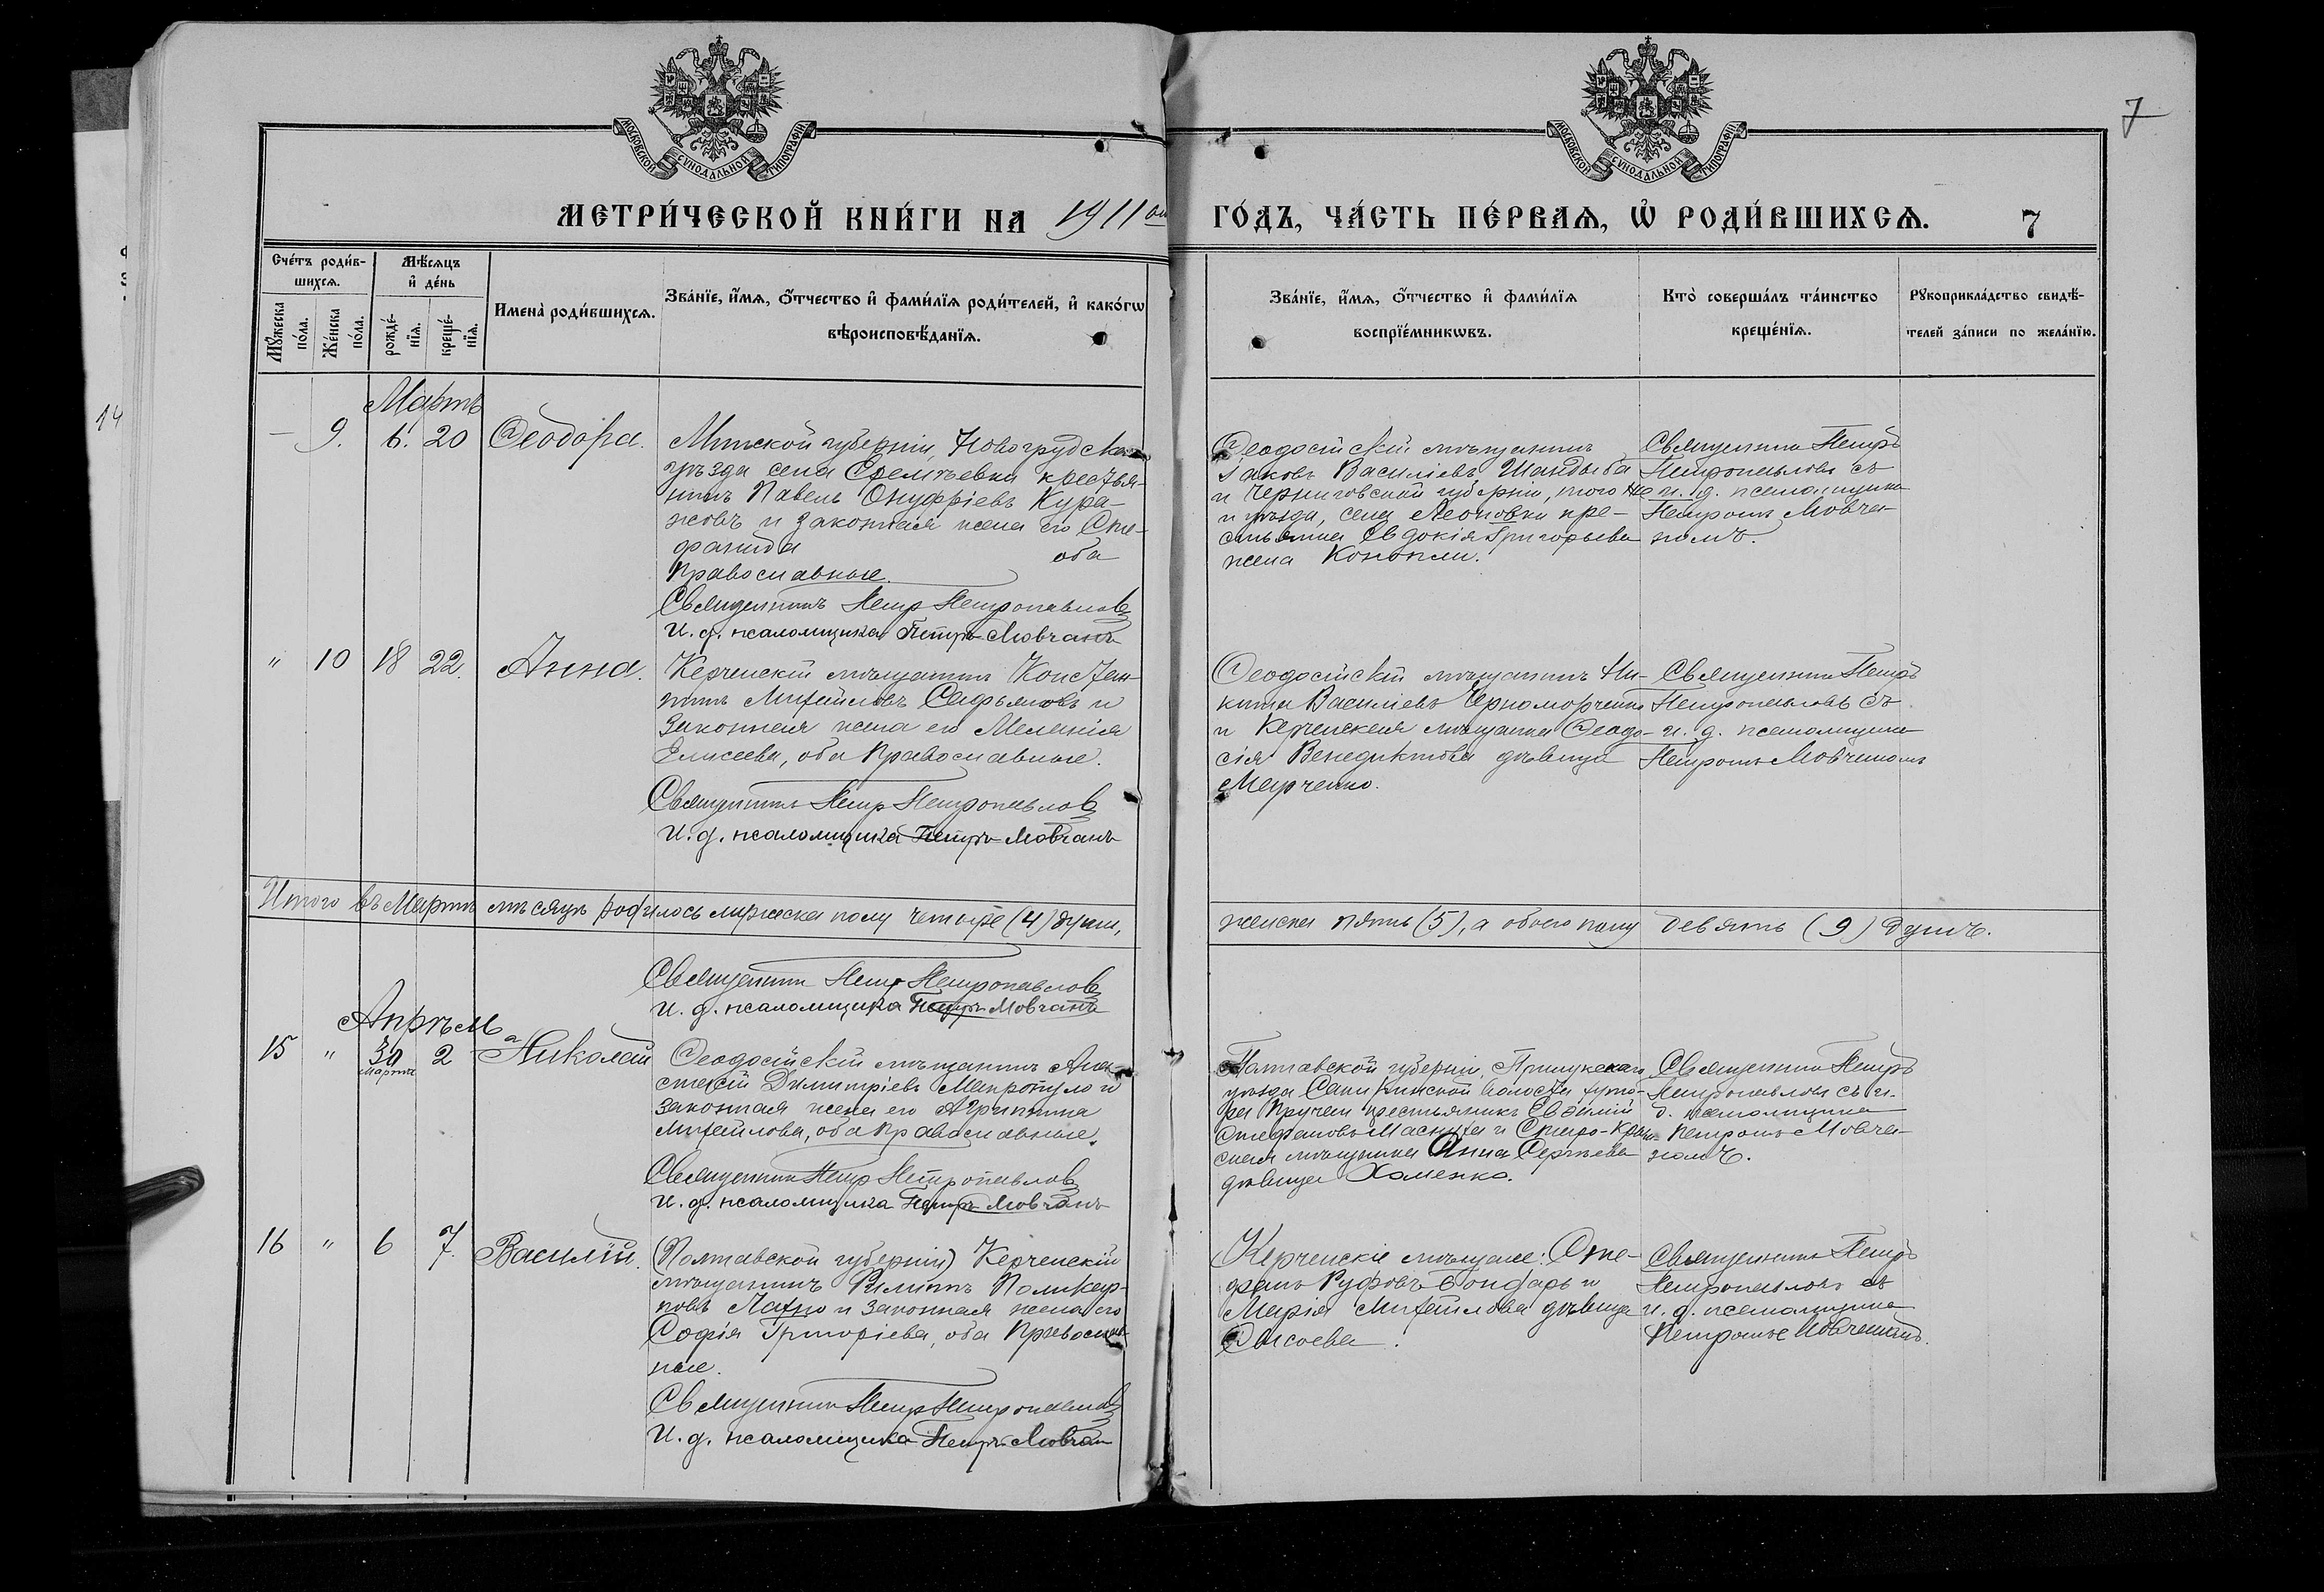 МОСКОВСКОЙ СѴНОДАЛЬНОЙ ТИПОГРАФІИ
МОСКОВСКОЙ СѴНОДАЛЬНОЙ ТИПОГРАФІИ
7
МЕТРИ́ЧЕСКОЙ КНИ́ГИ НА 1911 ый
ГО́ДЪ, ЧА́СТЬ ПЕ́РВАѦ, Ѡ҆ РОДИ́ВШИХСѦ. 7
Сче́тъ роди́в-
шихсѧ.
Мѣ́сѧцъ
и҆ де́нь
Мꙋ́жеска
по́ла.
Же́нска
по́ла.
рожде́-
нїѧ.
креще́-
нїѧ.
Имена̀ роди́вшихсѧ.
Зва́нїе, и҆́мѧ, ѻ҆́тчество и҆ фами́лїѧ роди́телей, и҆ како́гѡ
вѣроисповѣ́данїѧ.
Зва́нїе, и҆́мѧ, ѻ҆́тчество и҆ фами́лїѧ
воспрїе́мникѡвъ.
Кто̀ соверша́лъ та́инство
креще́нїѧ.
Рꙋкоприкла́дство свидѣ́-
телей за́писи по жела́нїю.
14
Мартъ
— 9. 6. 20 Ѳеодора.
Минской губерніи, Новогрудскаго
уѣзда села крестья-
нинъ Павелъ Онуфріевъ Кура-
жовъ и законная жена его Сте-
фанида оба
православные.
Священникъ Петр Петропавлов
И. д. псаломщика Петръ Мовчанъ
Ѳеодосійскій мѣщанинъ
Іаковъ Василіевъ Шандыба
и Черниговской губерніи, того же
и уѣзда, села кре-
стьянка Евдокія Григорьева
жена Конопли.
Священникъ Петръ
Петропавловъ съ
и. д. псаломщика
Петромъ Мовча-
номъ.
" 10 18 22. Анна.
Керченскій мѣщанинъ Констан-
тинъ Михайловъ Сафьяновъ и
законная жена его Меланія
Елисеева, оба православные.
Священникъ Петр Петропавлов
И. д. псаломщика Петръ Мовчанъ
Ѳеодосійскій мѣщанинъ Ни-
кита Василіевъ Черноморченко
и Керченская мѣщанка Ѳеодо-
сія Венедиктова дѣвица
Марченко.
Священникъ Петръ
Петропавловъ съ
и. д. псаломщика
Петромъ Мовчаномъ
Итого въ Мартѣ мѣсяцѣ родилось мужеска полу четыре (4) души,
женска пять (5), а обоего полу девять (9) душъ.
Священникъ Петр Петропавлов
и. д. псаломщика Петръ Мовчанъ
Апрѣль
15 " 30 марта 2 Николай
Ѳеодосійскій мѣщанинъ Ана-
стасій Димитріевъ Макропуло и
законная жена его Агриппина
Михайлова, оба православные.
Священникъ Петр Петропавлов
и. д. псаломщика Петръ Мовчанъ
Полтавской губерніи, Прилукскаго
уѣзда волости хуто-
ра крестьянинъ Евѳимій
Стефановъ Маснуха и Старо-Крым-
ская мѣщанка Анна Сергѣева
дѣвица Хоменко.
Священникъ Петръ
Петропавловъ съ и.
д. псаломщика
Петромъ Мовча-
номъ.
16 " 6 7. Василій.
(Полтавской губерніи) Керченскій
мѣщанинъ Филиппъ Поликар-
повъ Лахно и законная жена его
Софія Григоріева, оба Православ-
ные.
Священникъ Петр Петропавлов
И. д. псаломщика Петръ Мовчан
Керченскіе мѣщане: Сте-
фанъ Руфовъ Бондарь и
Марія Михайлова дѣвица
Сысоева.
Священникъ Петръ
Петропавловъ съ
и. д. псаломщика
Петромъ Мовчаномъ.